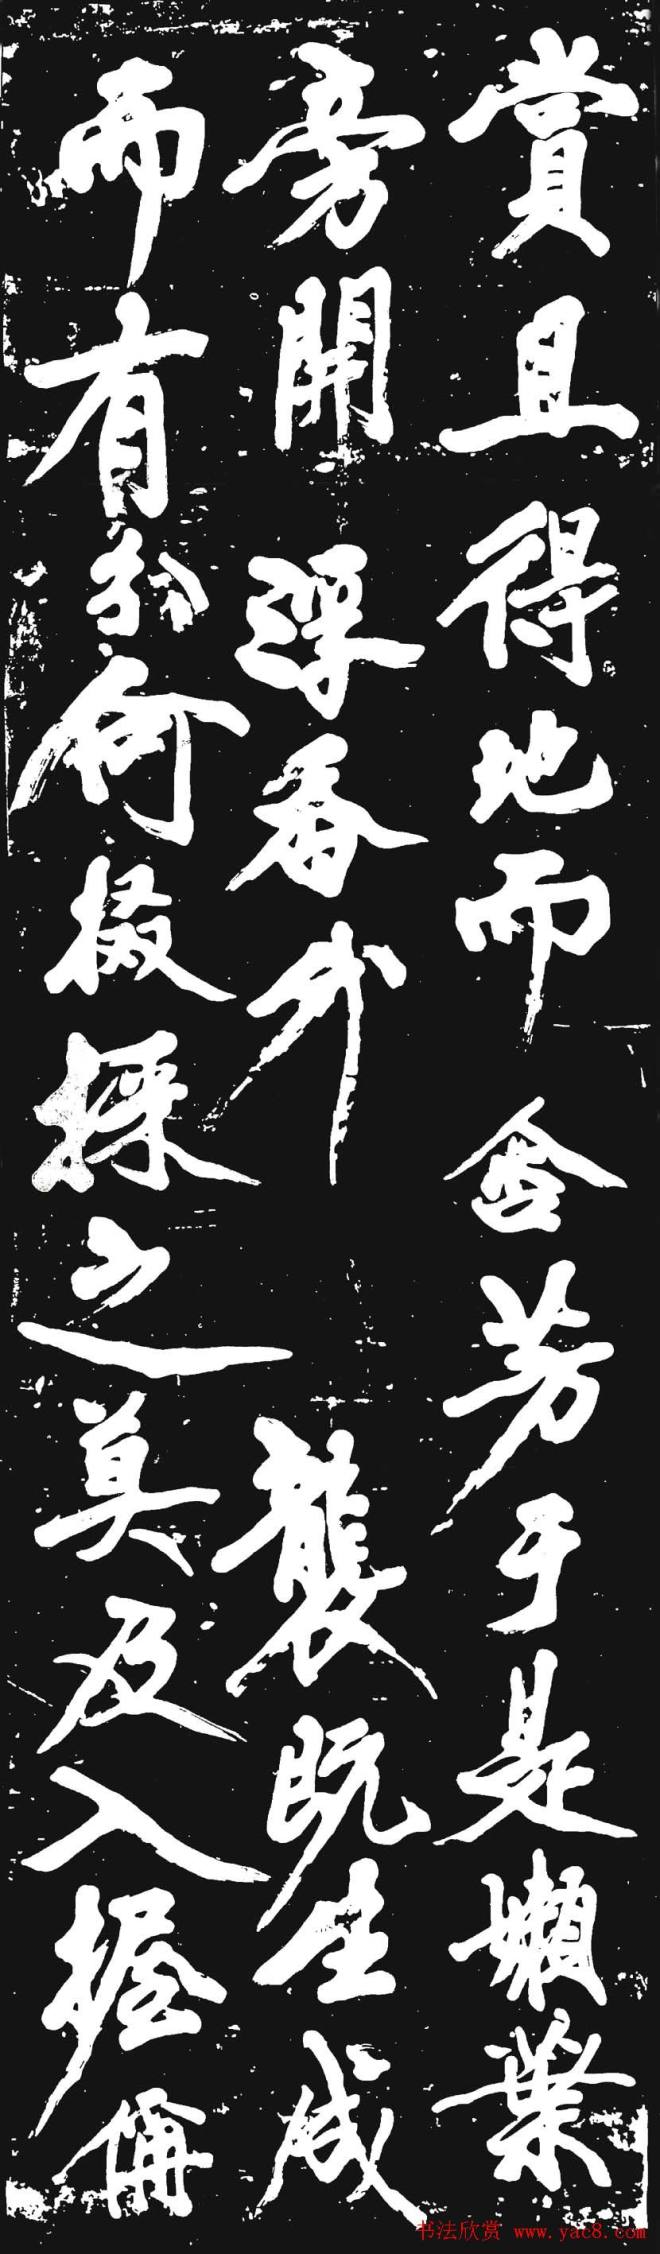 賞且得地而含芳于是嫩葉
旁開浮香外襲既生成
而有分何掇採之莫及入握偁
书法欣赏 www.yac8.com